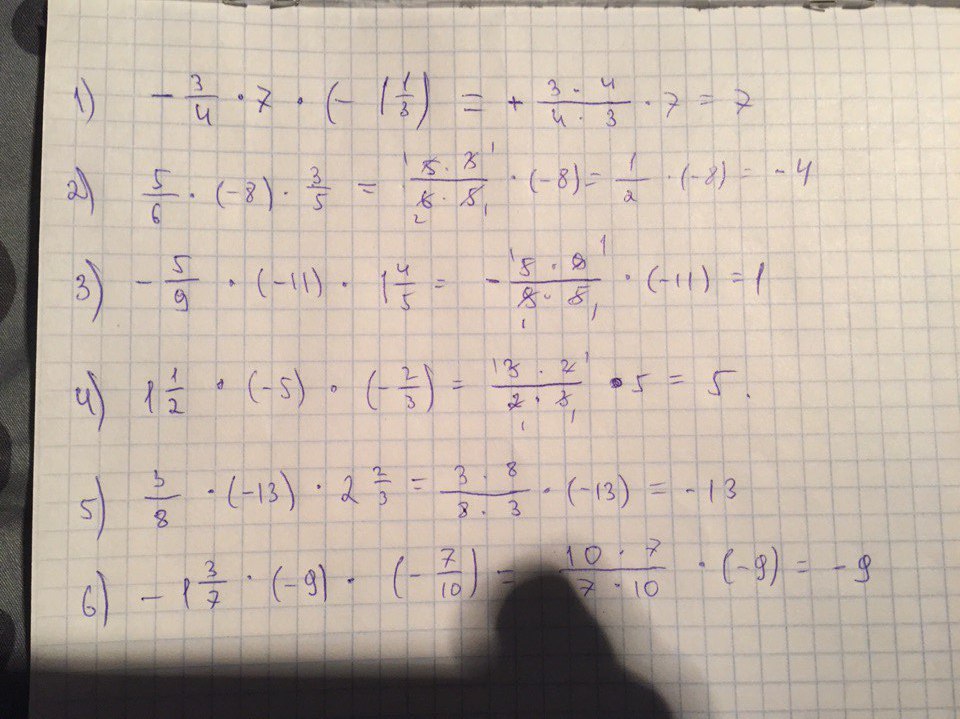 1) - 3/4 · 7 · (- 1 1/3) = + 3 · 4 / 4 · 3 · 7 = 7
2) 5/6 · (-8) · 3/5 = 5 · 3 / 6 · 5 · (-8) = 1/2 · (-8) = -4
3) - 5/9 · (-11) · 1 4/5 = - 5 · 9 / 9 · 5 · (-11) = 1
4) 1 1/2 · (-5) · (- 2/3) = 3 · 2 / 2 · 3 · 5 = 5.
5) 3/8 · (-13) · 2 2/3 = 3 · 8 / 8 · 3 · (-13) = -13
6) - 1 3/7 · (-9) · (- 7/10) = 10 · 7 / 7 · 10 · (-9) = -9